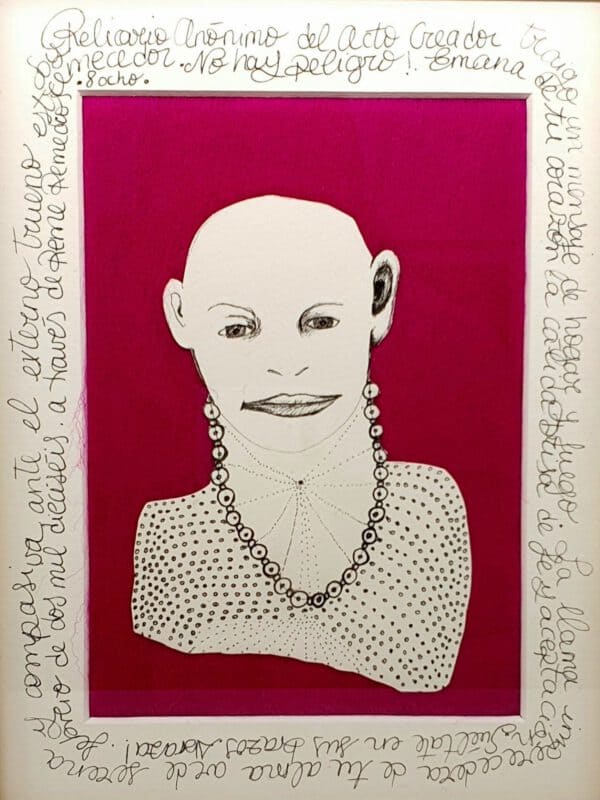 Relicario Anónimo del Acto Creador
traigo un mensaje de hogar y fuego. La llama im
perecedera de tu alma arde serena
y compasiva, ante el externo trueno estre
mecedor. No hay peligro! Emana
de tu corazón la cálida brisa de fe y aceptación.
Suéltate en sus brazos. Abraza!
de dos mil dieciseis. a través de Reme
.8ocho.